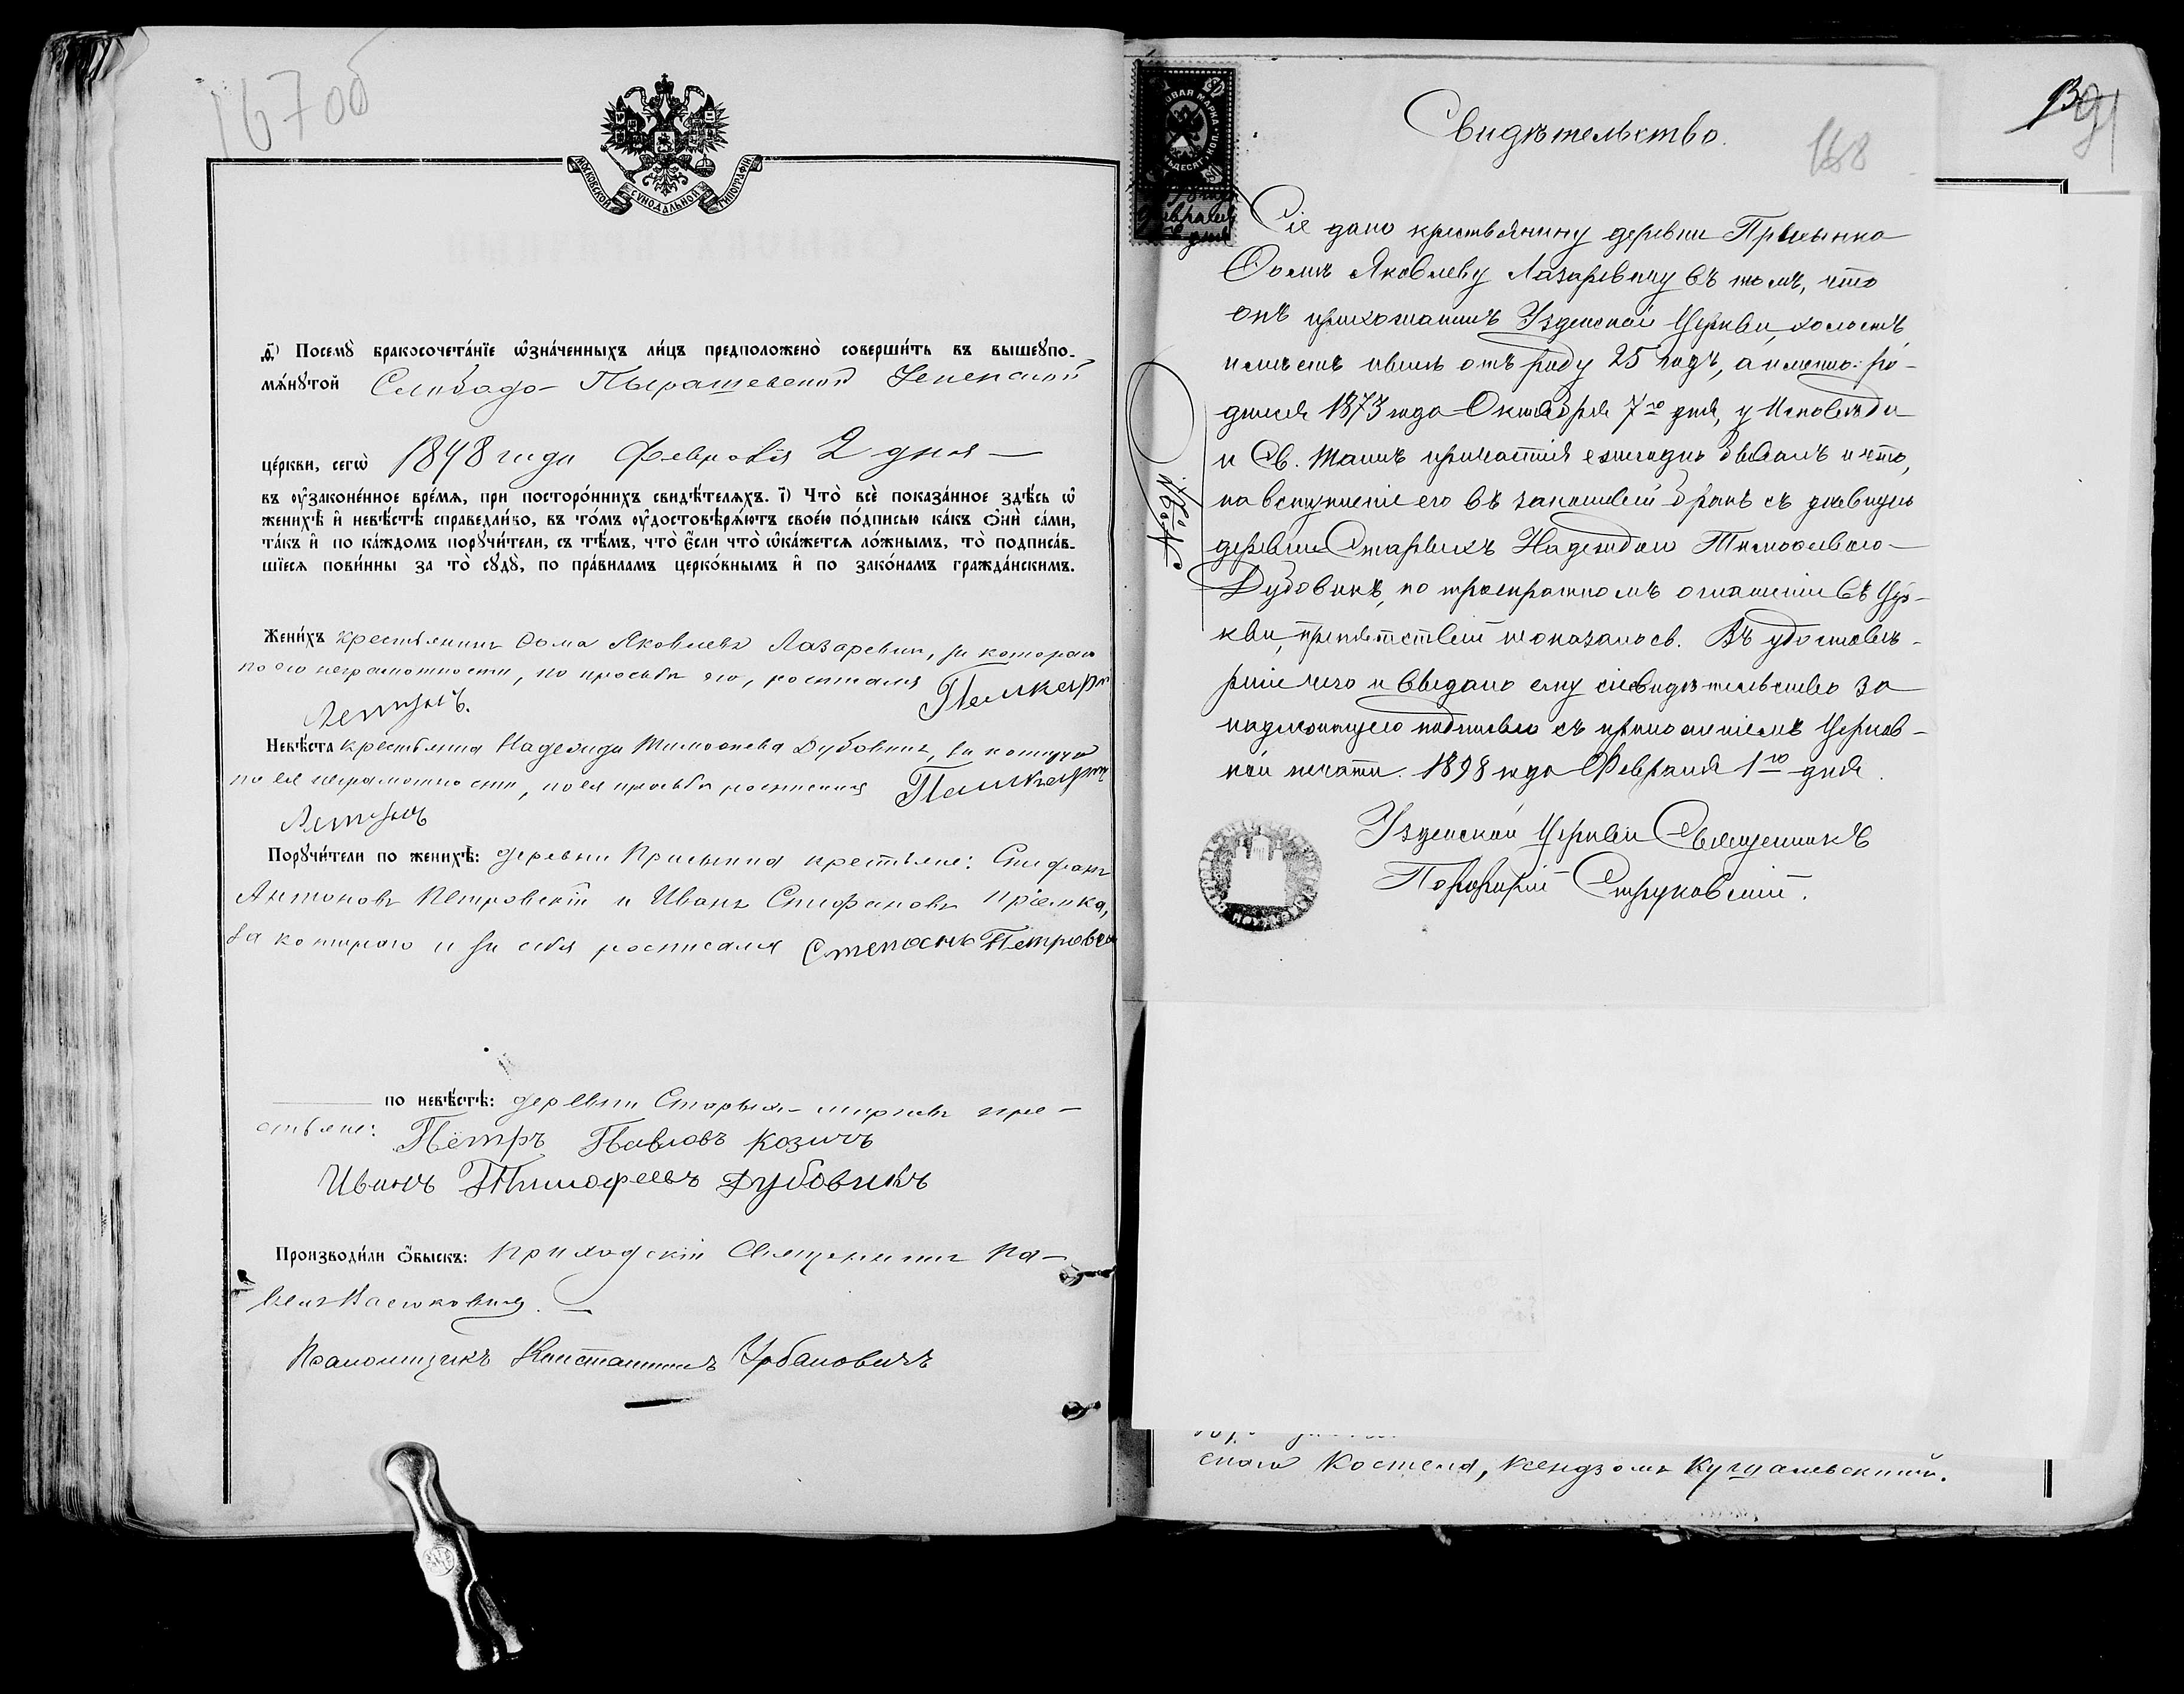 167об
МОСКОВСКОЙ СѴНОДАЛЬНОЙ ТИПОГРАФІИ
д҃) Посемꙋ̀ бракосочета́нїе ѡ҆зна́ченныхъ ли́цъ предположено̀ соверши́ть въ вышеꙋпо-
мѧ́нꙋтой Слободо-Пырашевской Успенской
це́ркви, сегѡ̀ 1898 года Февраля 2 дня —
въ ᲂу҆зако́ненное вре́мѧ, при посторо́ннихъ свидѣ́телѧхъ. і҃) Что̀ всѐ показа́нное здѣ́сь ѡ҆
женихѣ̀ и҆ невѣ́стѣ справедли́во, въ то́мъ ᲂу҆достовѣрѧ́ютъ свое́ю по́дписью ка́къ ѻ҆нѝ са́ми,
та́къ и҆ по ка́ждомъ порꙋчи́тели, съ тѣ́мъ, что̀ є҆́сли что̀ ѡ҆ка́жетсѧ ло́жнымъ, то̀ подписа́в-
шїесѧ пови́нны за то̀ сꙋдꙋ̀, по пра́виламъ церко́внымъ и҆ по зако́намъ гражда́нскимъ.
Жени́хъ крестьянинъ Ѳома Яковлевъ Лазаревич, за котораго
по его неграмотности, по просьбѣ его, росписался
Невѣ́ста крестьянка Надежда Тимоѳеева Дубовик, за которую
по ея неграмотности, по ея просьбѣ росписался
Порꙋчи́тели по женихѣ̀: деревни Присынка крестьяне: Стефанъ
Антоновъ Петровскій и Иванъ Стефановъ Пріемка,
за котораго и за себя росписался Степанъ Петровск
по невѣ́стѣ: деревни Старыхъ- кре-
стьяне: Петръ Павловъ Козичъ
Иванъ Тимофеевъ Дубовикъ
Производи́ли ѻ҆́быскъ: Приходскій Священникъ Па-
велъ Васюковичъ.
Псаломщикъ Константинъ Урбановичъ
168
Свидѣтельство.
Февраля
дня
Сіе дано крестьянину деревни Присынка
Ѳомѣ Яковлеву Лазаревичу въ томъ, что
онъ прихожанинъ Узденской Церкви, холостъ,
имѣетъ нынѣ отъ роду 25 годъ, а именно: ро-
дился 1873 года Октября 7го дня, у Исповѣди
и Св. Таинъ причастія ежегодно бывалъ и что,
на вступленіе его въ законный бракъ съ дѣвицею
деревни Старинкъ Надеждою Тимоѳеевою
Дубовикъ, по троекратномъ оглашеніи въ Цер-
кви, препятствій неоказалось. Въ удостовѣ-
реніе чего и выдано ему сіе свидѣтельство за
надлежащею подписью съ приложеніемъ Церков-
ной печати. 1898 года Февраля 1го дня.
Узденской Церкви Священникъ
Порфирій Струковскій.
скаго Костела, Ксендзомъ